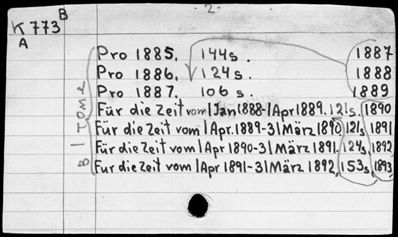 - 2 -
K 773 B
A
B | TOME
Pro 1885. 144s. 1887
Pro 1886. 124s. 1888
Pro 1887. 106s. 1889
Für die Zeit vom 1 Jan 1888-1 Apr 1889. 121s. 1890
Für die Zeit vom 1 Apr. 1889-31 März 1890 121s 1891
Für die Zeit vom 1 Apr 1890-31 März 1891. 124s. 1892
Für die Zeit vom 1 Apr 1891-31 März 1892. 153s. 1893